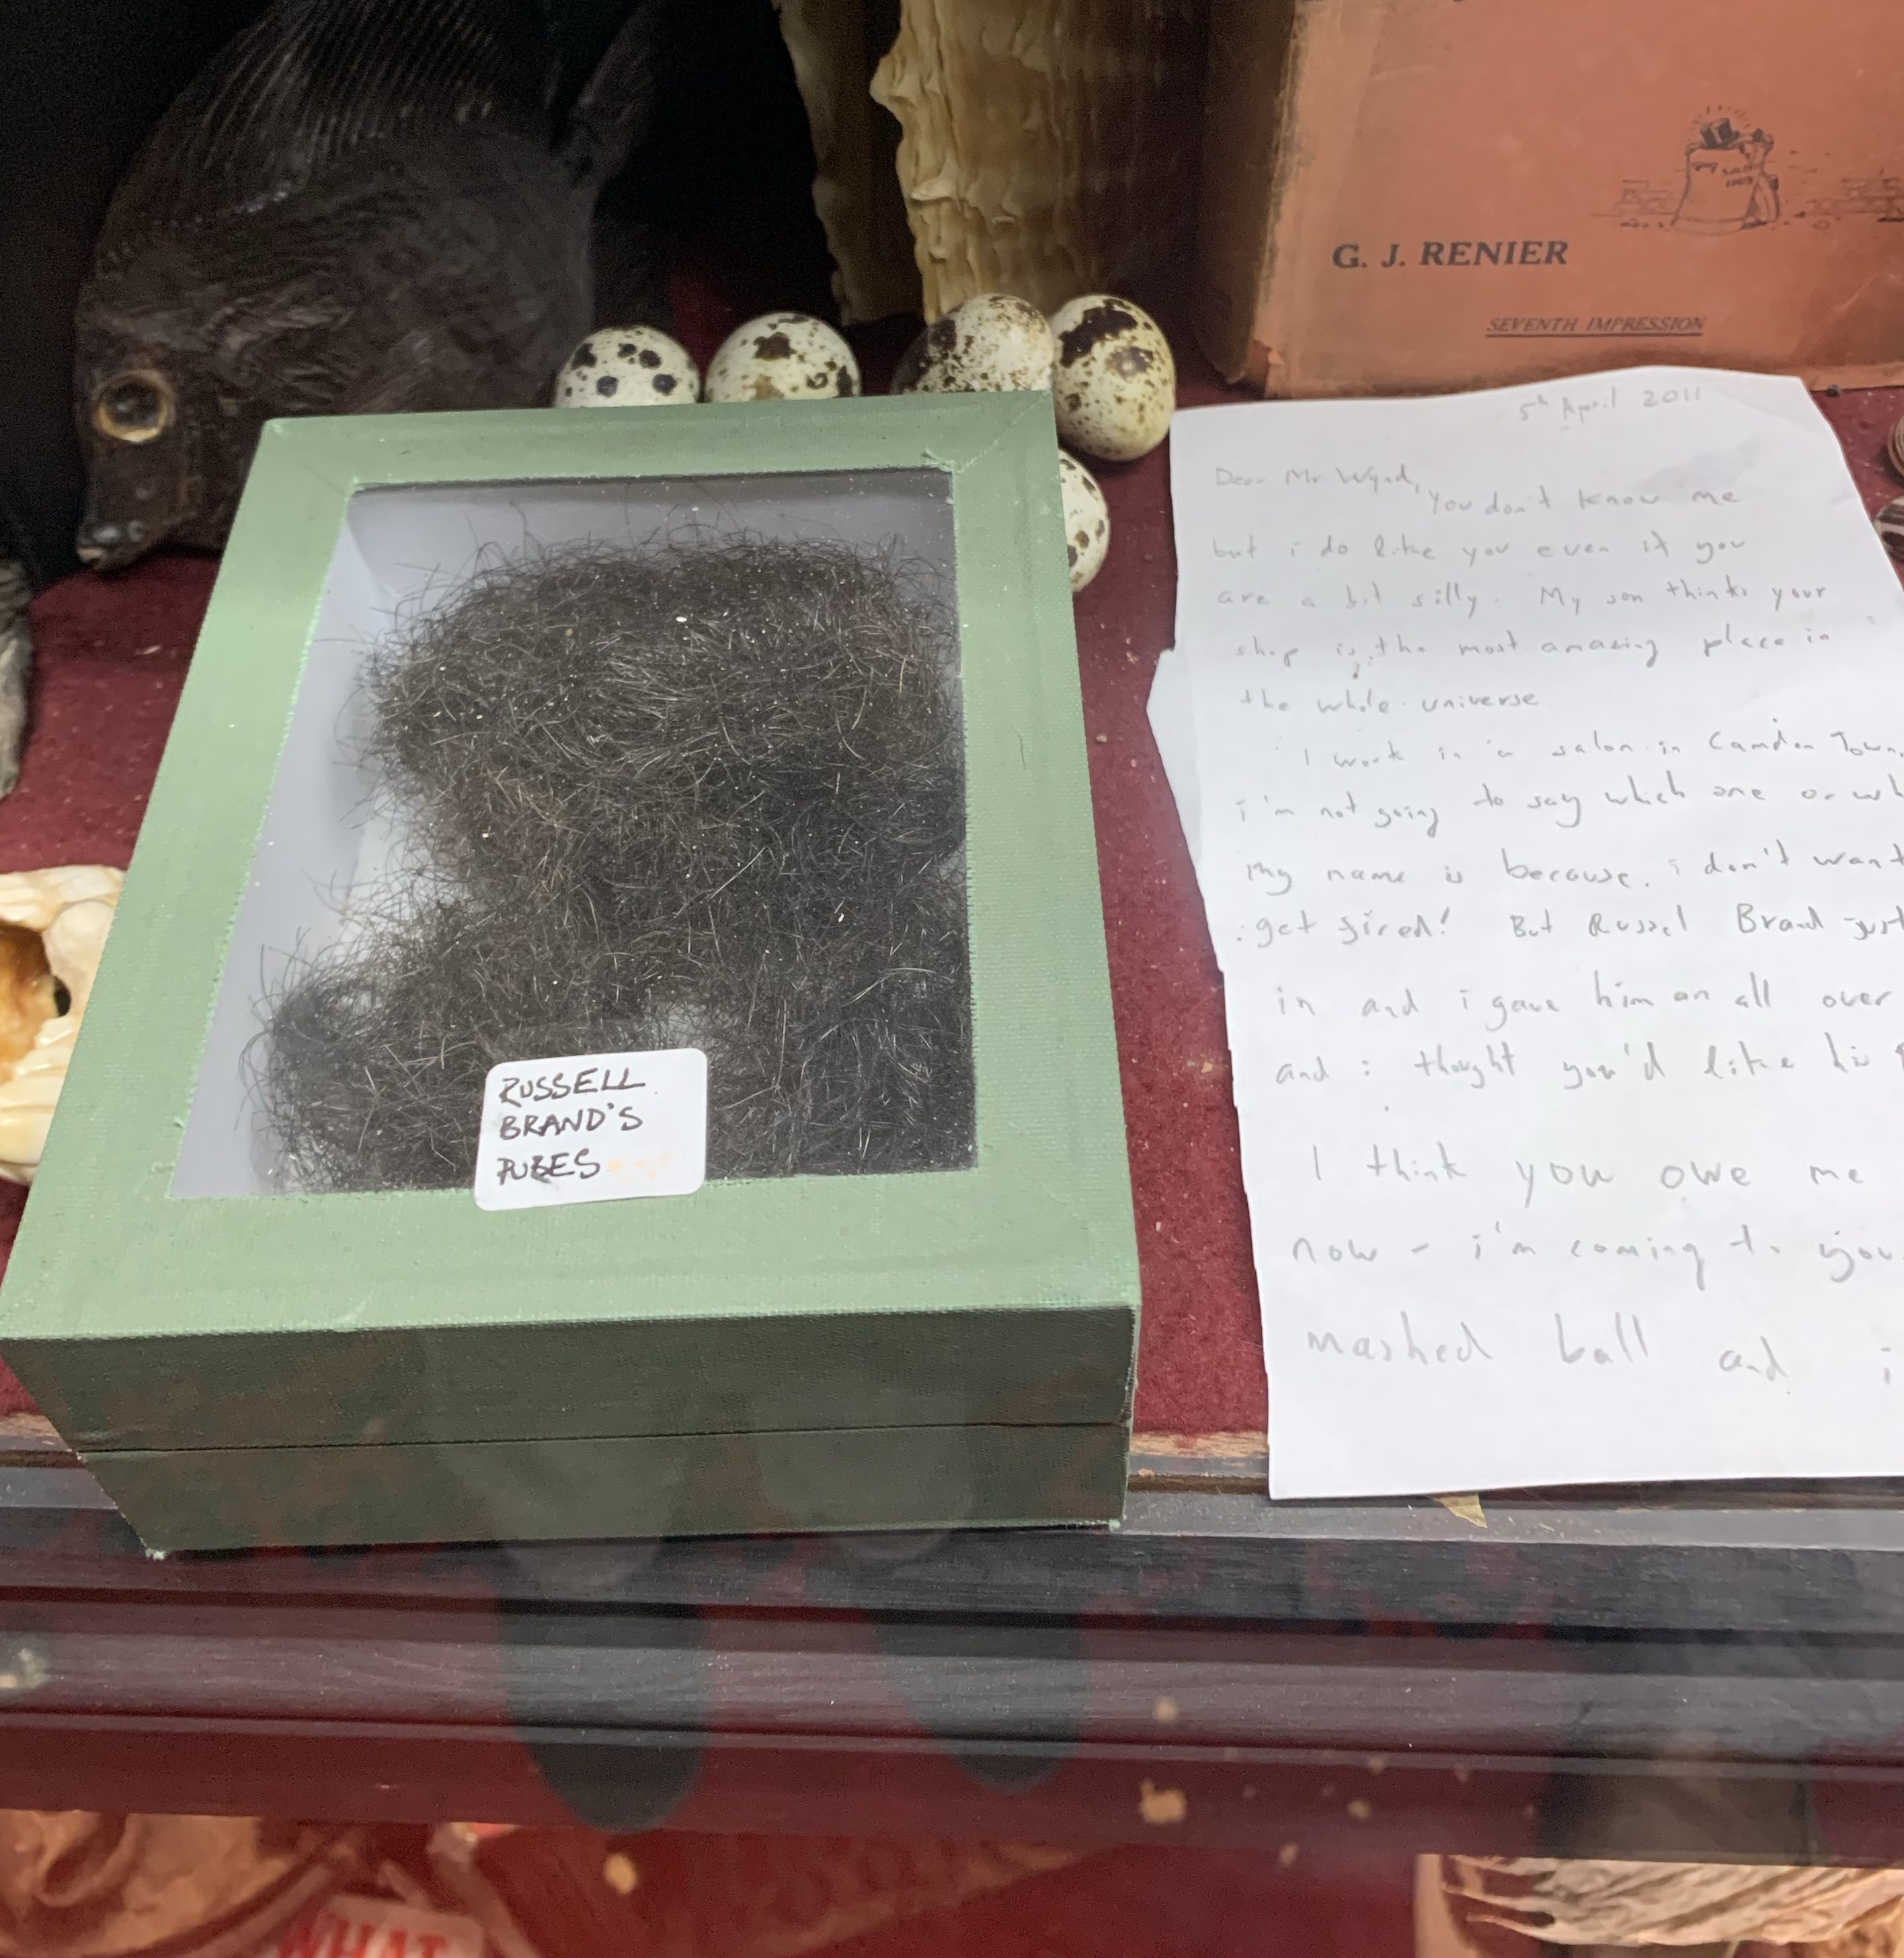 G. J. RENIER
SEVENTH IMPRESSION
5th April 2011
Dear Mr Wynd,
You don't know me
but i do like you even if you
are a bit silly. My son thinks your
shop is the most amazing place in
the whole universe
I work in a salon in Camden Town,
i'm not going to say which one or wh
My name is because i don't want
get fired! But Russel Brand just
in and i gave him an all over
and i thought you'd like his
I think you owe me
now - i'm coming to you
mashed ball and i
RUSSELL
BRAND'S
PUBES
WHAT